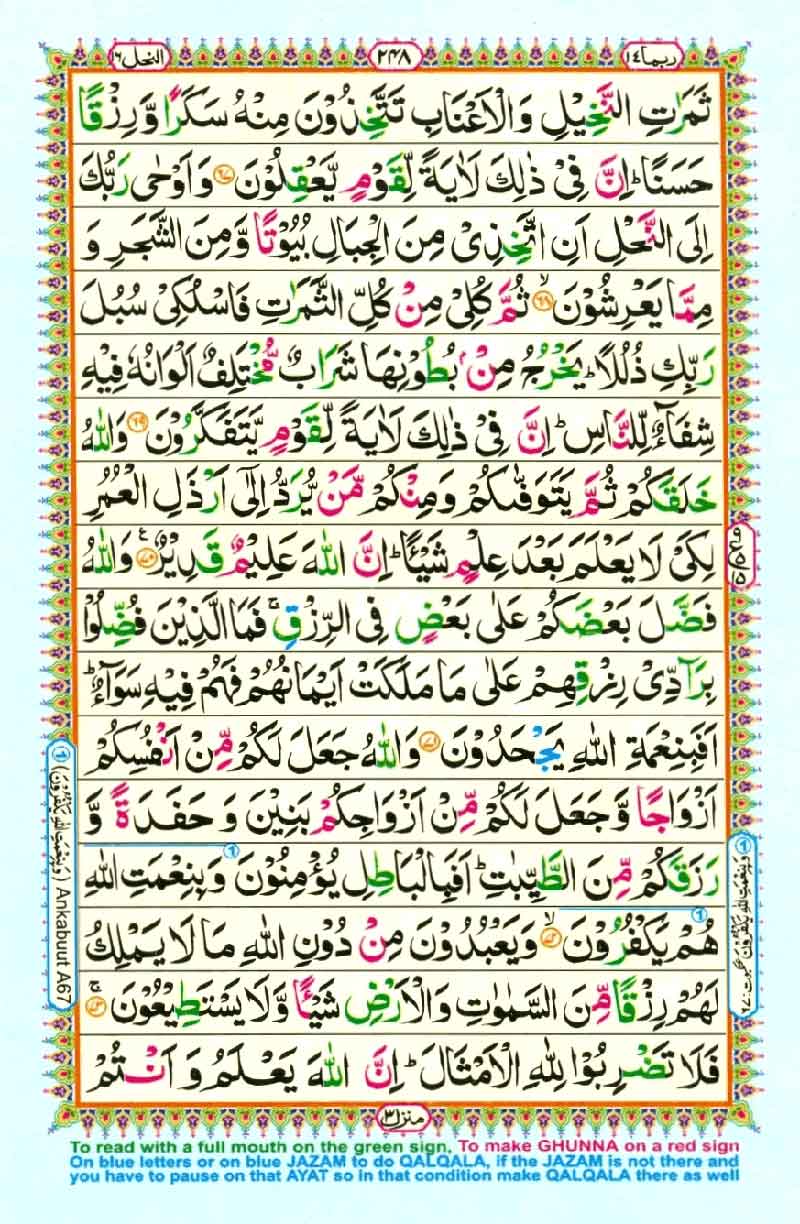 ربما ١٤
٢٤٨
النحل ١٦
ثَمَرٰتِ النَّخِيْلِ وَالْاَعْنَابِ تَتَّخِذُوْنَ مِنْهُ سَكَرًا وَّرِزْقًا
حَسَنًا ؕ اِنَّ فِيْ ذٰلِكَ لَاٰيَةً لِّقَوْمٍ يَّعْقِلُوْنَ ﴿۶۷﴾ وَاَوْحٰى رَبُّكَ
اِلَى النَّحْلِ اَنِ اتَّخِذِيْ مِنَ الْجِبَالِ بُيُوْتًا وَّمِنَ الشَّجَرِ وَ
مِمَّا يَعْرِشُوْنَ ۙ﴿۶۸﴾ ثُمَّ كُلِيْ مِنْ كُلِّ الثَّمَرٰتِ فَاسْلُكِيْ سُبُلَ
رَبِّكِ ذُلُلًا ؕ يَخْرُجُ مِنْۢ بُطُوْنِهَا شَرَابٌ مُّخْتَلِفٌ اَلْوَانُهٗ فِيْهِ
شِفَآءٌ لِّلنَّاسِ ؕ اِنَّ فِيْ ذٰلِكَ لَاٰيَةً لِّقَوْمٍ يَّتَفَكَّرُوْنَ ﴿۶۹﴾ وَاللّٰهُ
خَلَقَكُمْ ثُمَّ يَتَوَفّٰىكُمْ وَمِنْكُمْ مَّنْ يُّرَدُّ اِلٰٓى اَرْذَلِ الْعُمُرِ
لِكَيْ لَا يَعْلَمَ بَعْدَ عِلْمٍ شَيْـًٔا ؕ اِنَّ اللّٰهَ عَلِيْمٌ قَدِيْرٌ ﴿۷۰﴾ وَاللّٰهُ
فَضَّلَ بَعْضَكُمْ عَلٰى بَعْضٍ فِي الرِّزْقِ ۚ فَمَا الَّذِيْنَ فُضِّلُوْا
بِرَآدِّيْ رِزْقِهِمْ عَلٰى مَا مَلَكَتْ اَيْمَانُهُمْ فَهُمْ فِيْهِ سَوَآءٌ ؕ
اَفَبِنِعْمَةِ اللّٰهِ يَجْحَدُوْنَ ﴿۷۱﴾ وَاللّٰهُ جَعَلَ لَكُمْ مِّنْ اَنْفُسِكُمْ
اَزْوَاجًا وَّجَعَلَ لَكُمْ مِّنْ اَزْوَاجِكُمْ بَنِيْنَ وَحَفَدَةً وَّ
رَزَقَكُمْ مِّنَ الطَّيِّبٰتِ ؕ اَفَبِالْبَاطِلِ يُؤْمِنُوْنَ وَبِنِعْمَتِ اللّٰهِ
هُمْ يَكْفُرُوْنَ ۙ﴿۷۲﴾ وَيَعْبُدُوْنَ مِنْ دُوْنِ اللّٰهِ مَا لَا يَمْلِكُ
لَهُمْ رِزْقًا مِّنَ السَّمٰوٰتِ وَالْاَرْضِ شَيْـًٔا وَّلَا يَسْتَطِيْعُوْنَ ۚ﴿۷۳﴾
فَلَا تَضْرِبُوْا لِلّٰهِ الْاَمْثَالَ ؕ اِنَّ اللّٰهَ يَعْلَمُ وَاَنْتُمْ
منزل ٣
(وَبِنِعْمَتِ اللهِ يَكْفُرُوْنَ) Ankabuut A67
وَبِنِعْمَتِ اللهِ يَكْفُرُوْنَ عنكبوت
To read with a full mouth on the green sign, To make GHUNNA on a red sign
On blue letters or on blue JAZAM to do QALQALA, if the JAZAM is not there and
you have to pause on that AYAT so in that condition make QALQALA there as well